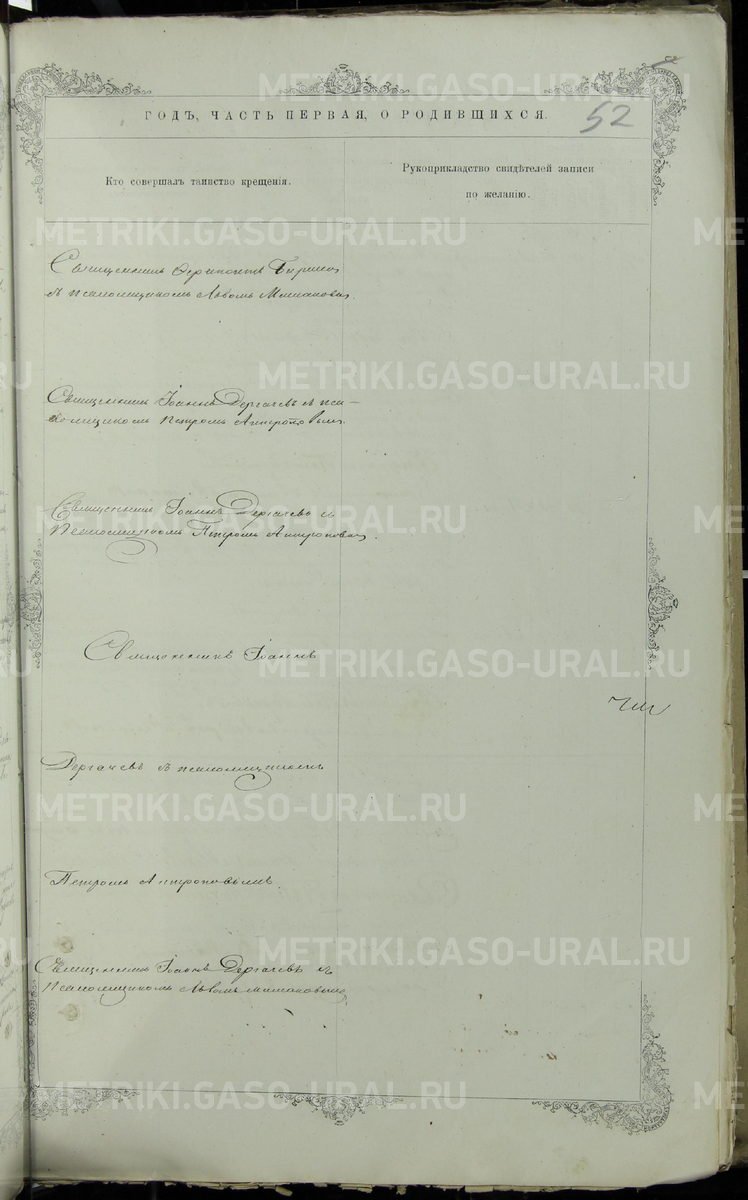 ГОДЪ, ЧАСТЬ ПЕРВАЯ, О РОДИВШИХСЯ.
52
Кто совершалъ таинство крещенія.
Рукоприкладство свидѣтелей записи
по желанію.
Священникъ
съ псаломщикомъ Львомъ
Священникъ Іоаннъ Дергачевъ съ пса-
ломщикомъ Петромъ Антроповымъ.
Священникъ Іоаннъ Дергачевъ съ
Псаломщикомъ Петромъ Антроповымъ.
Священникъ Іоаннъ
Дергачевъ съ псаломщикомъ
Петромъ Антроповымъ
Священникъ Іоаннъ Дергачевъ съ
Псаломщикомъ Львомъ
METRIKI.GASO-URAL.RU